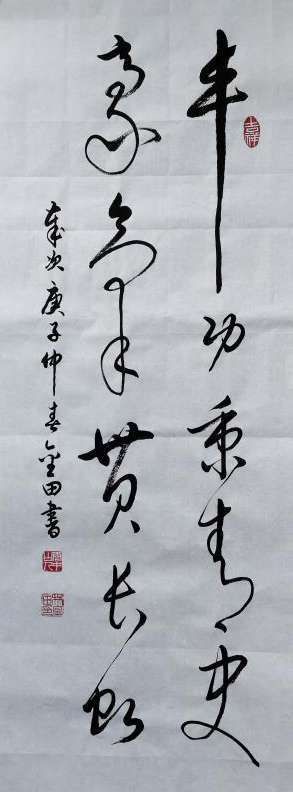 丰功秉青史
豪气贯长虹
岁次庚子仲春金田书